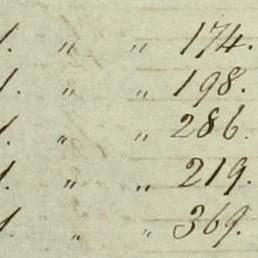 1. " " 174.
1. " " 198.
1. " " 286.
1. " " 219.
1. " " 369.